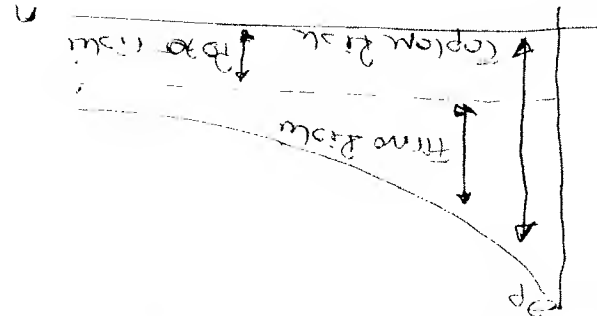 σp
Firma Risk
Toplam Risk
riski
n